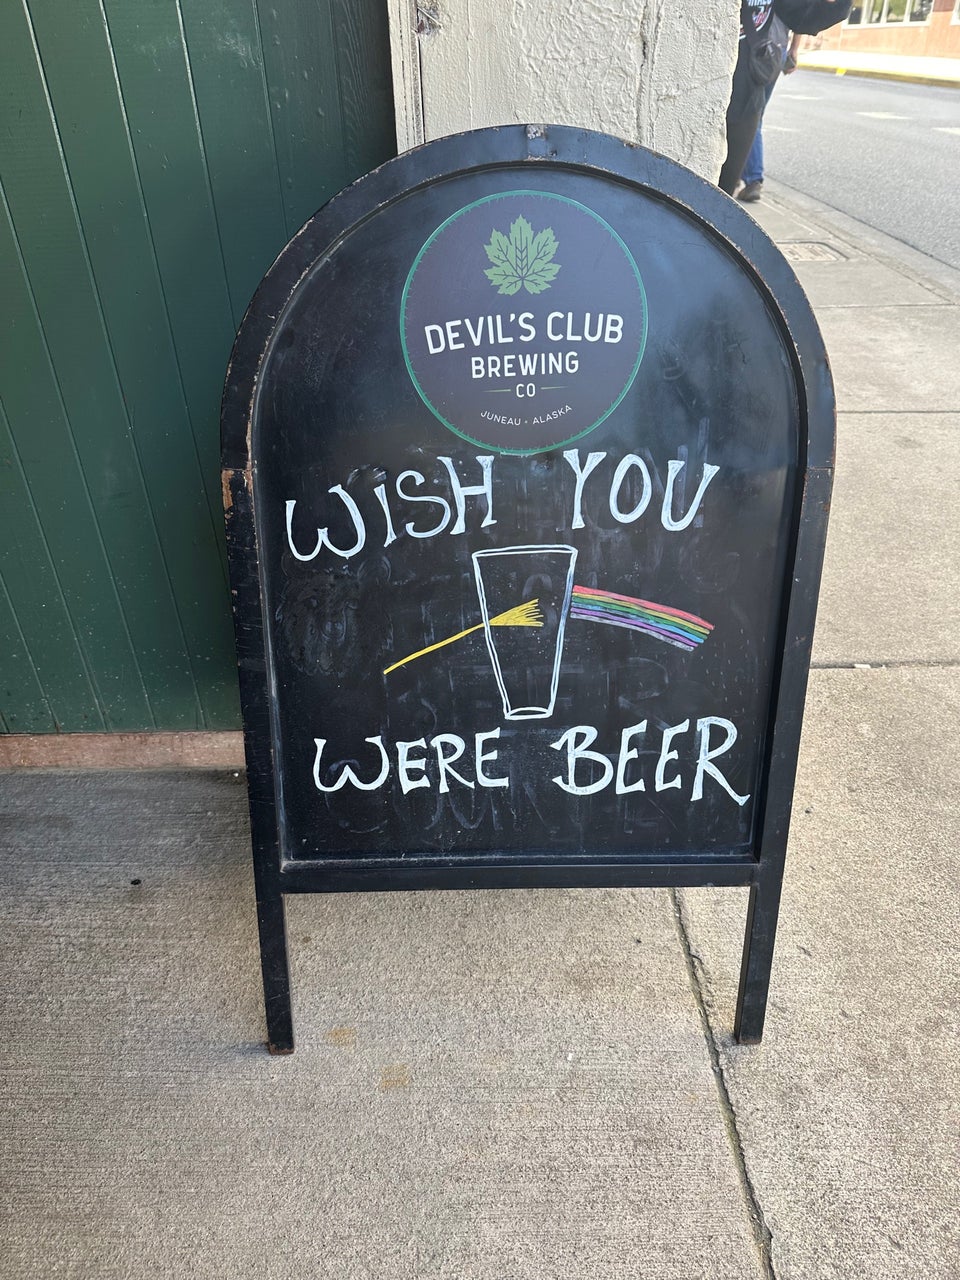 DEVIL'S CLUB
BREWING
CO
JUNEAU • ALASKA
WISH YOU
WERE BEER